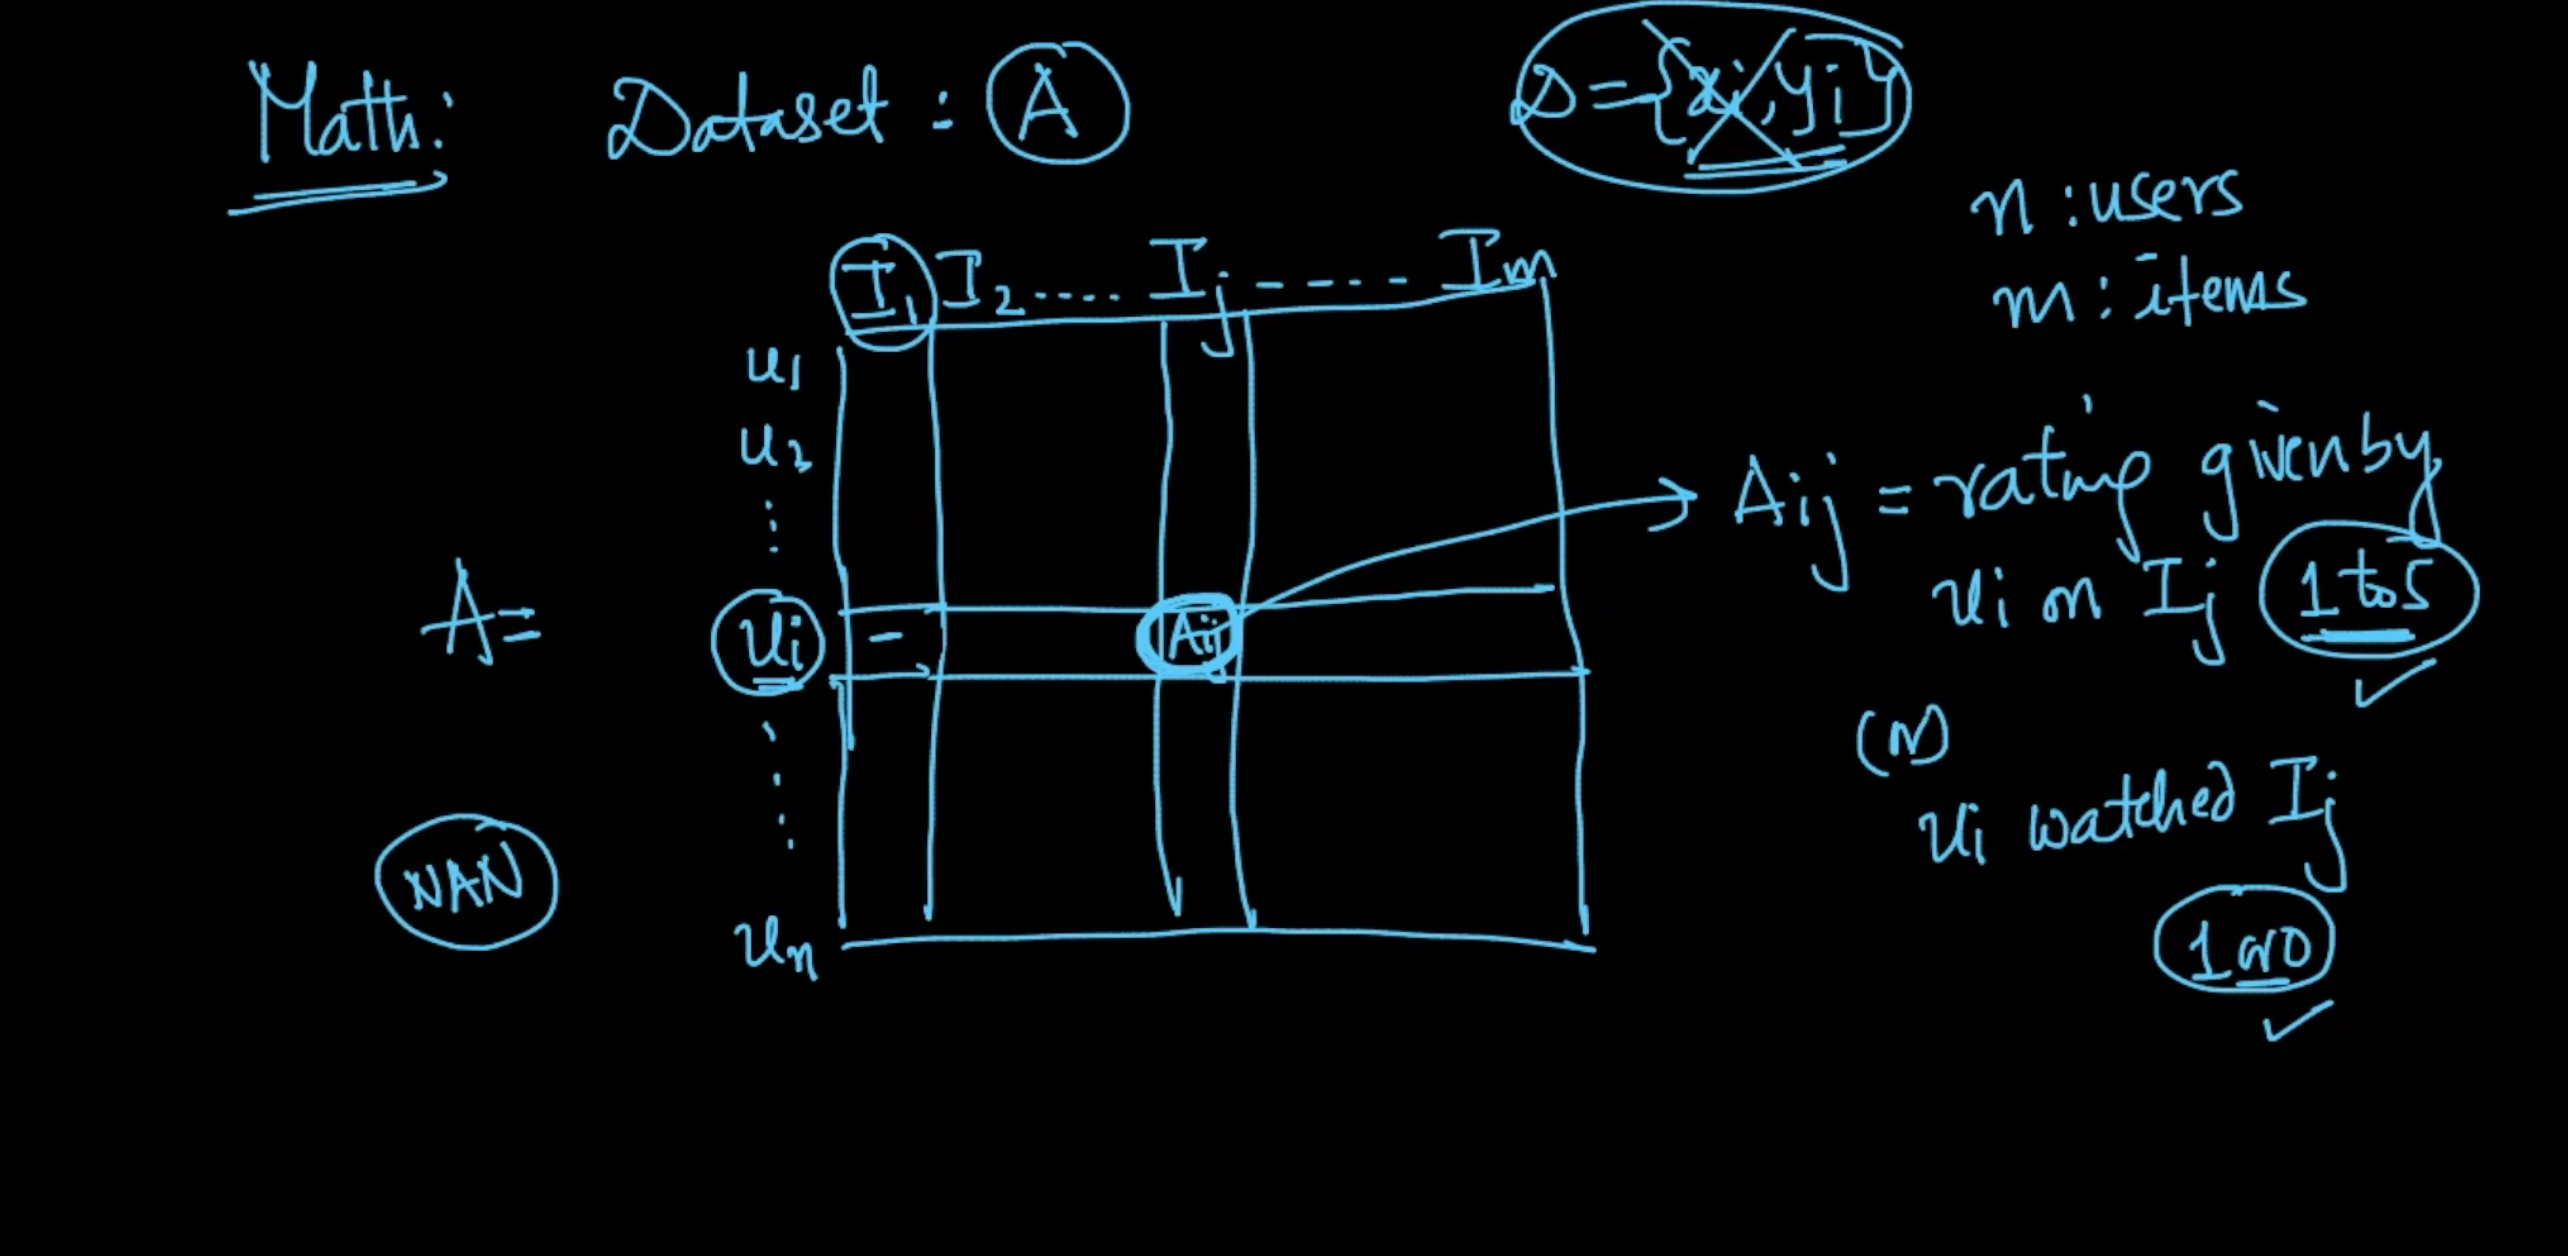 Math: Dataset : A D = {xi, yi}
n : users
m : items
I1 I2 .... Ij - - - - Im
u1
u2
⋮
A = ui - Aij → Aij = rating given by
ui on Ij 1 to 5
(or)
ui watched Ij
NAN
1 or 0
un